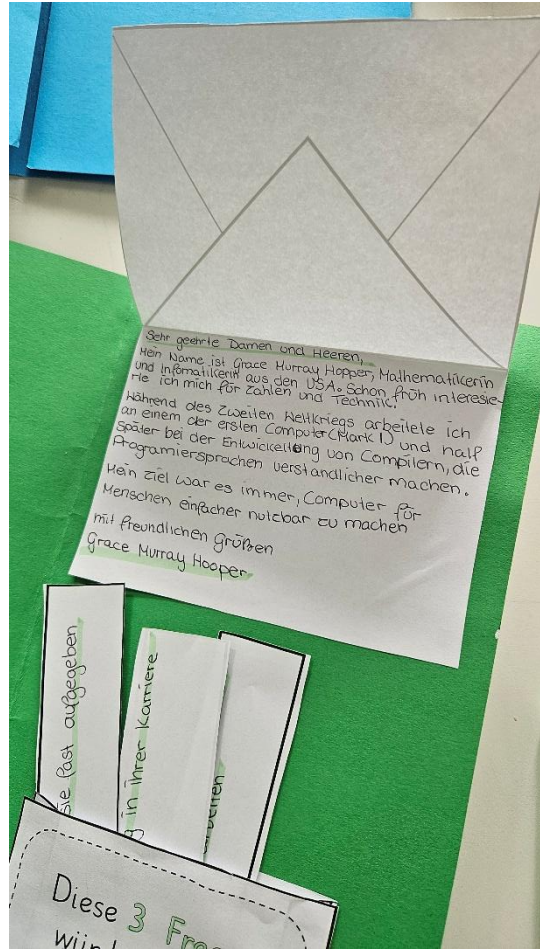 Sehr geehrte Damen und Heeren,
Mein Name ist Grace Murray Hopper, Mathematikerin
und Infomatikerin aus den USA. Schon früh interesie-
rte ich mich für Zahlen und Technik.
Während des Zweiten Weltkriegs arbeitete ich
an einem der ersten Computer (Mark I) und half
später bei der Entwickeltung von Compilern, die
Programiersprachen verständlicher machen.
Mein Ziel war es immer, Computer für
Menschen einfacher nutzbar zu machen
mit freundlichen Grüßen
Grace Murray Hooper
sie fast aufgegeben
g in ihrer Karriere
arbeiten
Diese 3